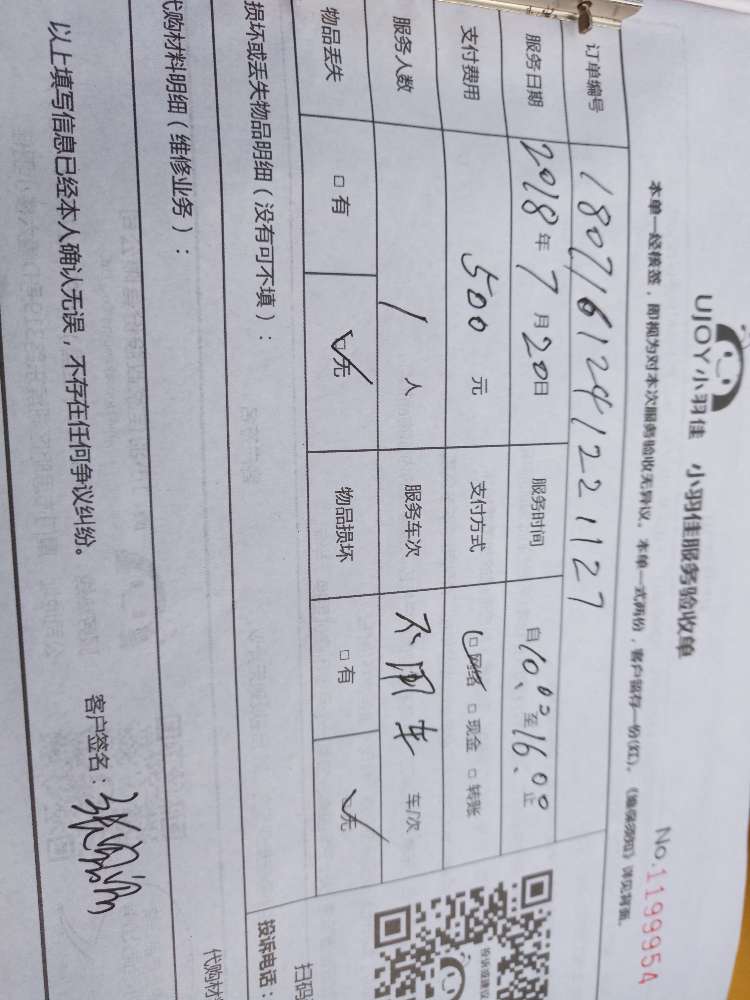 UJOY小羽佳 小羽佳服务验收单
No.1199954
本单一经核签，即视为对本次服务验收无异议。本单一式两份，客户留存一份(红)。
订单编号 1807161241221127
服务日期 2018年7月20日 服务时间 自10:00至16:00止
支付费用 500元 支付方式 □网络 □现金 □转账
服务人数 1人 服务车次 不用车 车/次
物品丢失 □有 □无 物品损坏 □有 □无
损坏或丢失物品明细（没有可不填）：
投诉或建议
扫码
投诉电话：
代购材料明细（维修业务）：
代购材
以上填写信息已经本人确认无误，不存在任何争议纠纷。
客户签名：